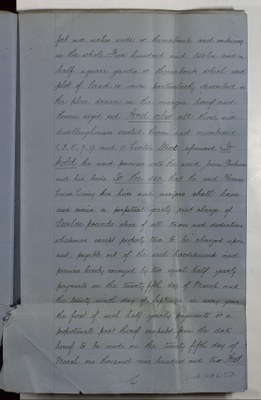 feet six inches wide or thereabouts and containing
in the whole Five hundred and twelve and a
half square yards or thereabouts which said
plot of land is more particularly described in
the plan drawn in the margin hereof and
thereon edged red And also all those six
dwellinghouses erected thereon and numbered
1, 3, 5, 7, 9 and 11 Street aforesaid To
hold the said premises unto the said
and his heirs To the use that the said
his heirs and assigns shall have
and receive a perpetual yearly rent charge of
Twelve pounds clear of all taxes and deductions
whatsoever except property tax to be charged upon
and payable out of the said hereditaments and
premises hereby conveyed by two equal half yearly
payments on the twenty fifth day of March and
the twenty ninth day of September in every year
the first of such half yearly payments or a
proportionate part thereof computed from the date
hereof to be made on the twenty fifth day of
March one thousand nine hundred and two And